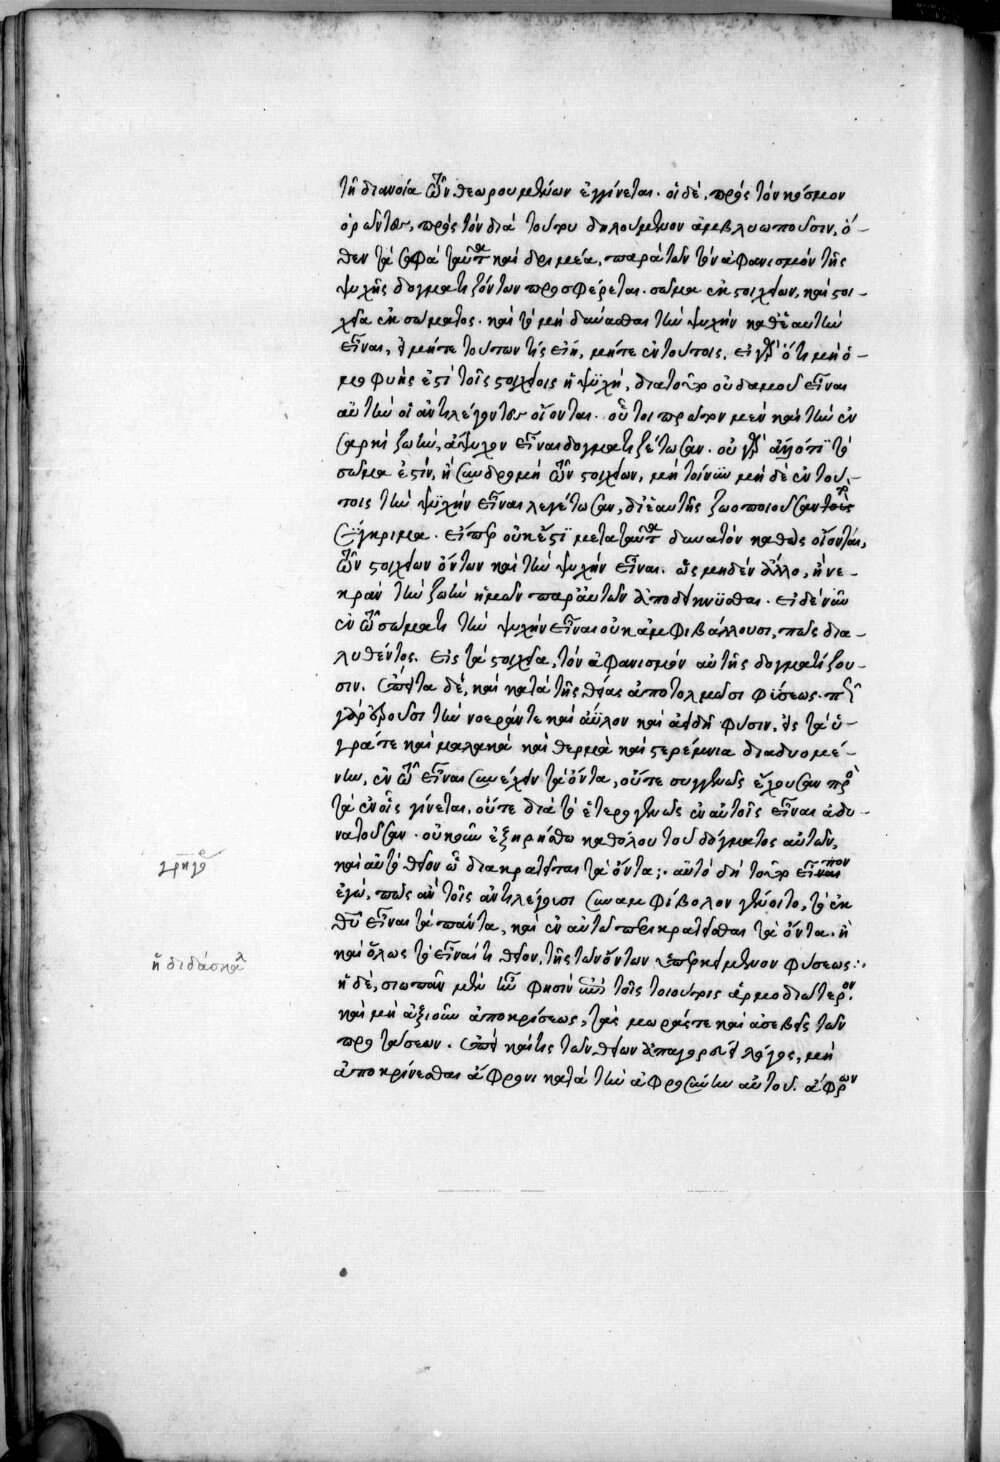 τῇ διανοία τῶν θεωρουμένων ἐγγίνεται. οἱ δὲ, πρὸς τὸν κόσμον
ὁρῶντες, πρὸς τὸν διὰ τούτου δηλούμενον ἀμβλυωποῦσιν, ὅ-
θεν τὰ σοφὰ ταῦτα καὶ δριμέα, παρὰ τῶν τὸν ἀφανισμὸν τῆς
ψυχῆς δογματιζόντων προσφέρεται. σῶμα ἐκ στοιχείων, καὶ στοι-
χεῖα ἐκ σώματος. καὶ τὸ μὴ δύνασθαι τὴν ψυχὴν καθ' ἑαυτὴν
εἶναι, εἰ μήτε τούτων τίς εἴη, μήτε ἐν τούτοις. εἰ γὰρ ὅτι μὴ ὁ-
μοφυής ἐστι τοῖς στοιχείοις ἡ ψυχή, διατοῦτο οὐδαμοῦ εἶναι
αὐτὴν οἱ ἀντιλέγοντες οἴονται. οὗτοι πρῶτον μὲν καὶ τὴν ἐν
σαρκὶ ζωὴν, ἄψυχον εἶναι δογματιζέτωσαν. οὐ γὰρ ἄλλό τι τὸ
σῶμα ἐστίν, ἢ συνδρομὴ τῶν στοιχείων, μὴ τοίνυν μὴ δὲ ἐν τού-
τοις τὴν ψυχὴν εἶναι λεγέτωσαν, δι' ἑαυτῆς ζωοποιοῦσαν τὸ
σύγκριμα. εἴπερ οὐκ ἔστι μετα ταῦτα δυνατόν καθὼς οἴονται,
τῶν στοιχείων ὄντων καὶ τὴν ψυχὴν εἶναι. ὡς μηδὲν ἄλλο, ἢ νε-
κρὰν τὴν ζωὴν ἡμῶν παρ' αὐτῶν ἀποδείκνυσθαι. εἰ δὲ νῦν
ἐν τῷ σώματι τὴν ψυχὴν εἶναι οὐκ ἀμφιβάλλουσι, πῶς δια-
λυθέντος. εἰς τὰ στοιχεῖα, τὸν ἀφανισμὸν αὐτῆς δογματίζου-
σιν. ἔπειτα δὲ, καὶ κατὰ τῆς θείας ἀποτολμῶσι φύσεως. πῶς
γὰρ ἐροῦσι τὴν νοεράν τε καὶ ἄϋλον καὶ ἀειδῆ φύσιν, εἰς τὰ ὑ-
γρά τε καὶ μαλακὰ καὶ θερμὰ καὶ στερέμνια διαδυομέ-
νην, ἐν τῷ εἶναι συνέχειν τὰ ὄντα, οὔτε συγγενῶς ἔχουσαν πρὸς
τὰ ἐν οἷς γίνεται, οὔτε διὰ τὸ ἑτερογενῶς ἐν αὐτοῖς εἶναι ἀδυ-
νατοῦσαν. οὐκοῦν ἐξῃρήσθω καθόλου τοῦ δόγματος αὐτῶν,
καὶ αὐτὸ θεῖον ᾧ διακρατεῖται τὰ ὄντα;· αὐτὸ δὴ τοῦτο εἶπον
ἐγὼ, πῶς ἂν τοῖς ἀντιλέγουσι ἀναμφίβολον γένοιτο, τὸ ἐκ
θεοῦ εἶναι τὰ πάντα, καὶ ἐν αὐτῷ περικρατεῖσθαι τὰ ὄντα. ἢ
καὶ ὅλως τὸ εἶναί τι θεῖον, τῆς τῶν ὄντων ὑπερκείμενον φύσεως:·
ἡ δὲ, σιωπᾶν μὲν φησὶν ἐπὶ τοῖς τοιούτοις ἁρμοδιώτερον.
καὶ μὴ ἀξιοῦν ἀποκρίσεως, τὰς μωράς τε καὶ ἀσεβεῖς τῶν
προτάσεων. ἐπεὶ καί τις τῶν θείων ἀπαγορεύει λόγος, μὴ
ἀποκρίνεσθαι ἄφρονι κατὰ τὴν ἀφροσύνην αὐτοῦ. ἄφρων
γρηγό
ἡ διδάσκαλ